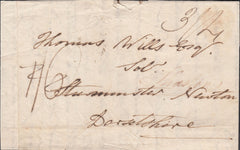 Thomas Wills Esqr.
Solr.
Sturminster Newton
Dorsetshire